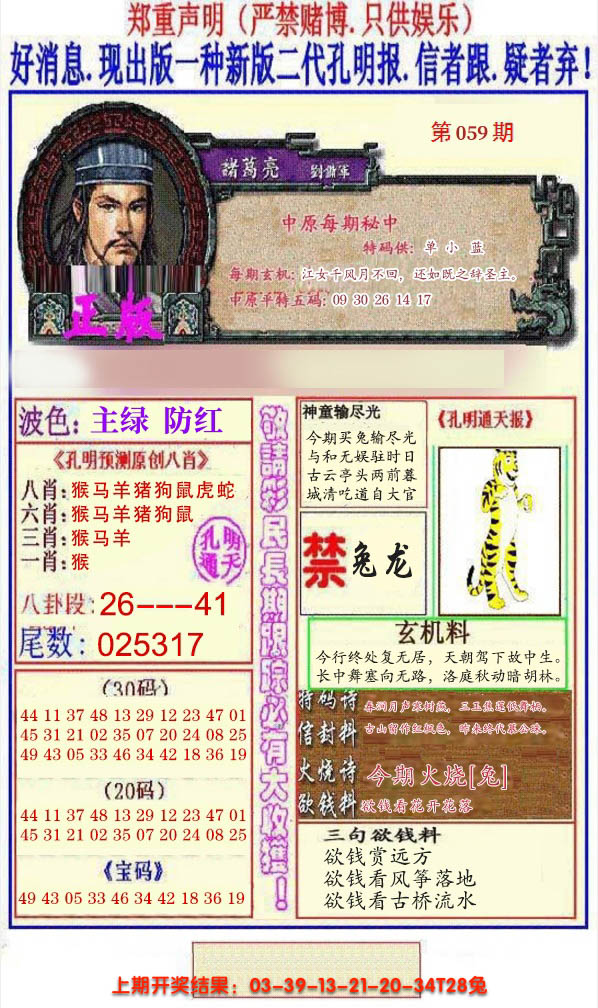 郑重声明（严禁赌博.只供娱乐）
好消息.现出版一种新版二代孔明报.信者跟.疑者弃!
第059期
諸葛亮 劉備軍
中原每期秘中
特码供: 单 小 蓝
每期玄机: 江女千风月不回，还如既之辞圣主。
中原平特五码: 09 30 26 14 17
正版
波色: 主绿 防红
《孔明预测原创八肖》
八肖: 猴马羊猪狗鼠虎蛇
六肖: 猴马羊猪狗鼠
三肖: 猴马羊
一肖: 猴
孔明通天
八卦段: 26---41
尾数: 025317
(30码)
44 11 37 48 13 29 12 23 47 01
45 31 21 02 35 07 20 24 08 25
49 43 05 33 46 34 42 18 36 19
(20码)
44 11 37 48 13 29 12 23 47 01
45 31 21 02 35 07 20 24 08 25
《宝码》
49 43 05 33 46 34 42 18 36 19
敬請彩民長期跟踪必有大收獲！
神童输尽光
今期买兔输尽光
与和无娱驻时日
古云亭头两前暮
城清吃道自大官
《孔明通天报》
禁 兔龙
玄机料
今行终处复无居，天朝驾下故中生。
长中舞塞向无路，洛庭秋动暗胡林。
特码诗
信封料
火烧诗 今期火烧[兔]
欲钱料 欲钱看花开花落
三句欲钱料
欲钱赏远方
欲钱看风筝落地
欲钱看古桥流水
上期开奖结果：03-39-13-21-20-34T28兔